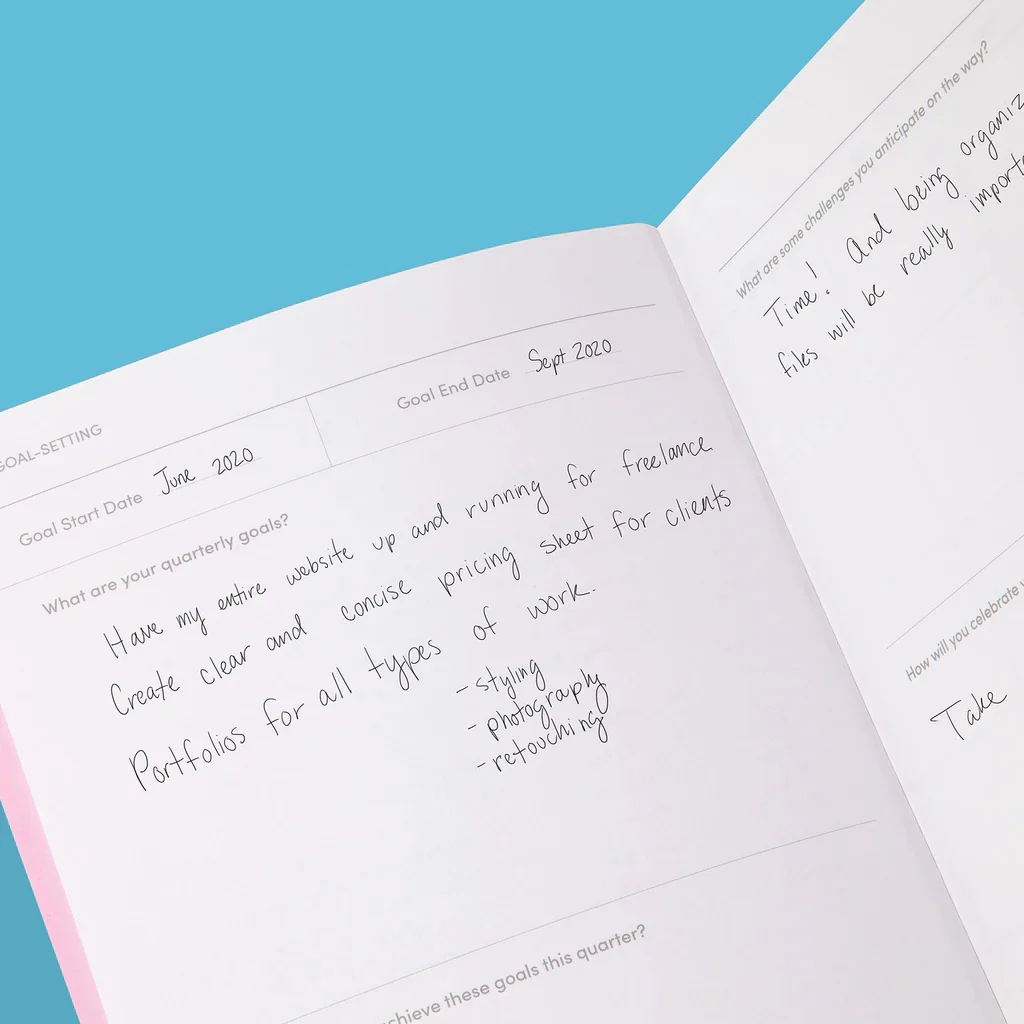 GOAL-SETTING
Goal Start Date June 2020
Goal End Date Sept 2020
What are your quarterly goals?
Have my entire website up and running for freelance
Create clear and concise pricing sheet for clients
Portfolios for all types of work.
- styling
- photography
- retouching
chieve these goals this quarter?
What are some challenges you anticipate on the way?
Time! And being organiz
files will be really import
How will you celebrate
Take